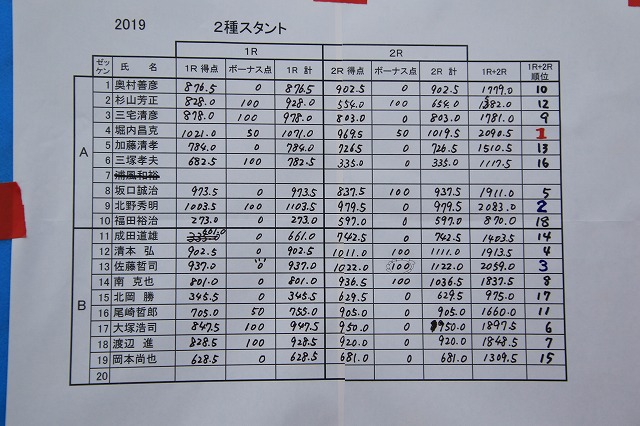 2019 2種スタント
1R 2R
ゼッケン 氏 名 1R 得点 ボーナス点 1R 計 2R 得点 ボーナス点 2R 計 1R+2R 1R+2R 順位
A
1 奥村善彦 876.5 0 876.5 902.5 0 902.5 1779.0 10
2 杉山芳正 828.0 100 928.0 554.0 100 654.0 1382.0 12
3 三宅清彦 878.0 100 978.0 803.0 0 803.0 1781.0 9
4 堀内昌克 1021.0 50 1071.0 969.5 50 1019.5 2090.5 1
5 加藤清孝 784.0 0 784.0 726.5 0 726.5 1510.5 13
6 三塚孝夫 682.5 100 782.5 335.0 0 335.0 1117.5 16
7 浦風和裕
8 坂口誠治 973.5 0 973.5 837.5 100 937.5 1911.0 5
9 北野秀明 1003.5 100 1103.5 979.5 0 979.5 2083.0 2
10 福田裕治 273.0 0 273.0 597.0 0 597.0 870.0 18
B
11 成田道雄 661.0 0 661.0 742.5 0 742.5 1403.5 14
12 清本 弘 902.5 0 902.5 1011.0 100 1111.0 1913.5 4
13 佐藤哲司 937.0 0 937.0 1022.0 100 1122.0 2059.0 3
14 南 克也 801.0 0 801.0 936.5 100 1036.5 1837.5 8
15 北岡 勝 345.5 0 345.5 629.5 0 629.5 975.0 17
16 尾崎哲郎 705.0 50 755.0 905.0 0 905.0 1660.0 11
17 大塚浩司 847.5 100 947.5 950.0 0 950.0 1897.5 6
18 渡辺 進 828.5 100 928.5 920.0 0 920.0 1848.5 7
19 岡本尚也 628.5 0 628.5 681.0 0 681.0 1309.5 15
20